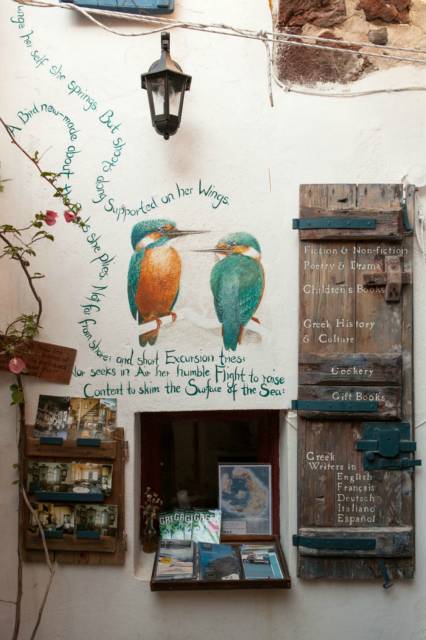 wings her self she springs But stoops
A Bird new-made about the
she plies, Not far from shore: and short Excursion tries:
Nor seeks in Air her humble Flight to raise
Content to skim the Surface of the Sea:
Supported on her Wings
Fiction & Non-fiction
Poetry & Drama
Children's Books
Greek History
& Culture
Cookery
Gift Books
Greek
Writers in
English
Français
Deutsch
Italiano
Español